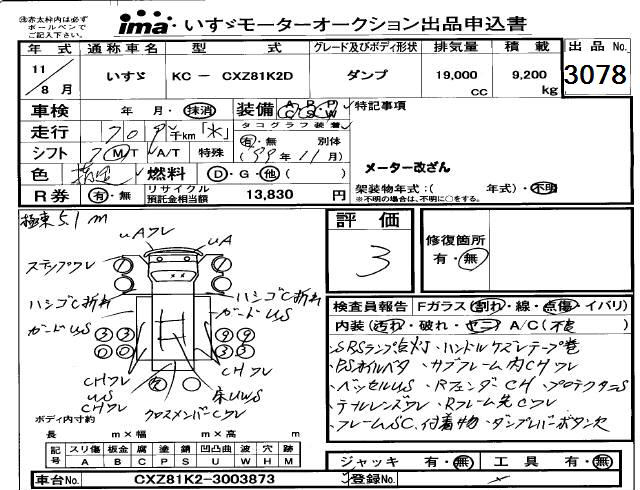 ※赤太枠内は必ず
ボールペンで
ご記入下さい。
ima・いすゞモーターオークション出品申込書
年 式 通称車名 型 式 グレード及びボディ形状 排気量 積 載 出 品 No.
11/8月 いすゞ KC － CXZ81K2D ダンプ 19,000cc 9,200kg 3078
車検 年 月・抹消 装備 A/C P/S P/W 特記事項
走行 千km「 」 タコグラフ装着
シフト MT A/T 特殊 有・無 別体 (99年11月)
メーター改ざん
色 燃料 D・G・他( ) 架装物年式:( 年式)・不明
※不明の場合は、不明に○をする。
R券 有・無 リサイクル預託金相当額 13,830 円
極東5.1m
評 価
3
修復箇所
有・無
uAワレ
uA
ステップワレ
ハシゴC折れ
ハシゴC折れ
ガードUS
ガードUS
CHワレ
US
CHワレ
CHワレ
US
床UWS
クロスメンバーCワレ
検査員報告 Fガラス(割れ・線・点傷・イバリ)
内装(汚れ・破れ・ヤニ) A/C(不良)
・SRSランプ点灯・ハンドルケズレテープ巻
・PSオイルベタ・サブフレーム内CHワレ
・ベッセルUS・RフェンダCH・プロテクタニS
・テールレンズワレ・Rフレーム先Cワレ
・フレームSC、付着物・ダンプレバーボタン欠
ボディ内寸約
長 m×幅 m×高 m
記号 スリ傷 板金 腐 塗 錆 凹 凹曲 波 穴 跡
A B C P S U W H M
ジャッキ 有・無 工 具 有・無
車台No. CXZ81K2-3003873 登録No.